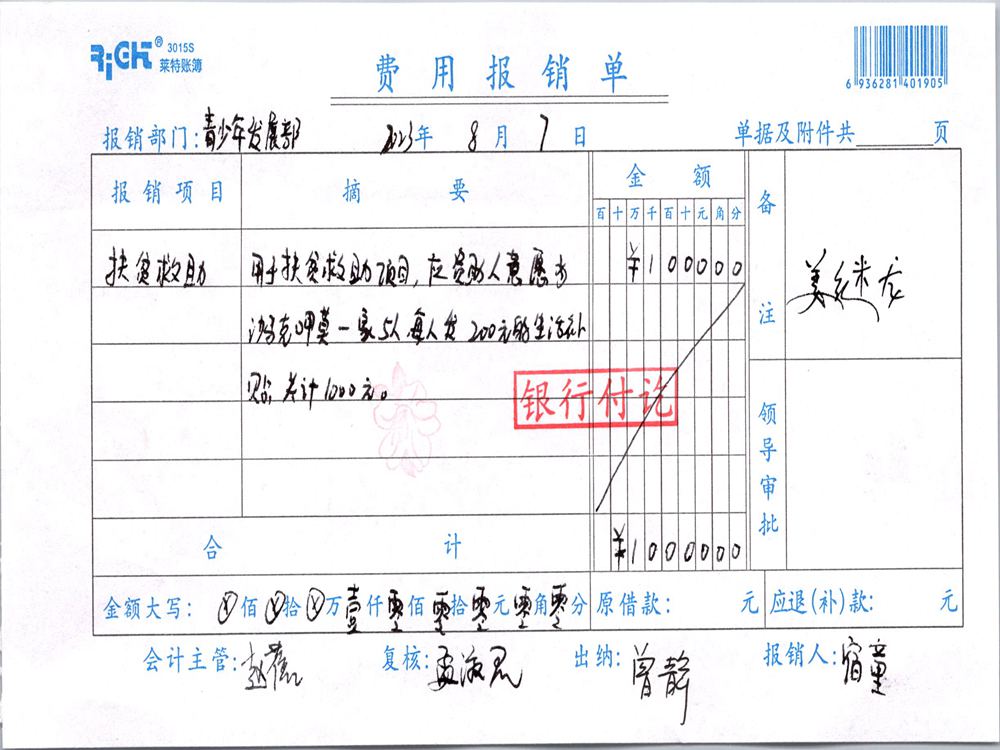 RiGHT® 3015S
莱特账簿
费用报销单
6 936281 401905
报销部门:青少年发展部 2023年 8月 7日 单据及附件共 页
报销项目 摘要 金额 备注
百 十 万 千 百 十 元 角 分
扶贫救助 用于扶贫救助项目, 应资助人意愿为 ¥100000
一家5人每人发200元的生活补
贴,共计1000元。
银行付讫
领导审批
合计 ¥1000000
金额大写: ⓧ佰ⓧ拾ⓧ万壹仟零佰零拾零元零角零分 原借款: 元 应退(补)款: 元
会计主管: 复核:孟淑君 出纳:曾静 报销人:宿童